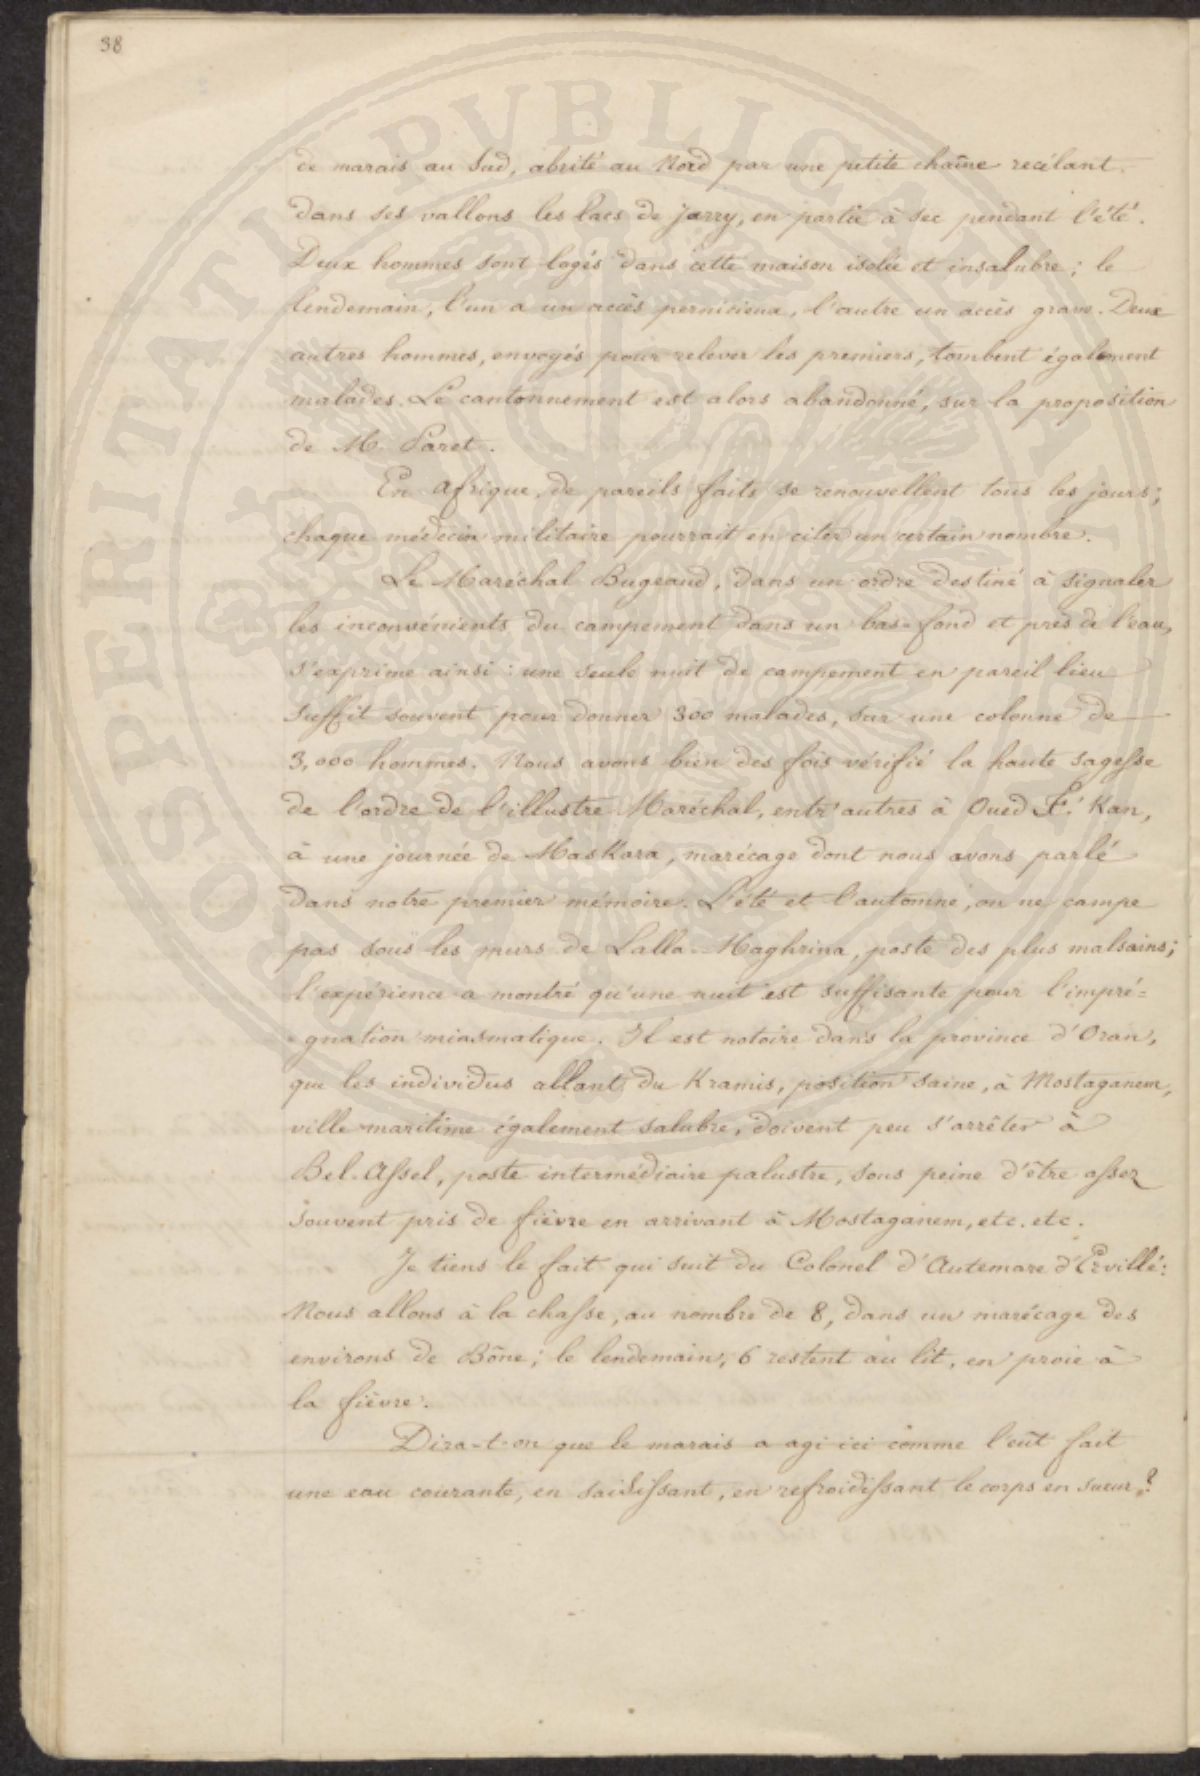 38
de marais au Sud, abrité au Nord par une petite chaîne recélant
dans ses vallons les lacs de Jarry, en partie à sec pendant l'été.
Deux hommes sont logés dans cette maison isolée et insalubre ; le
lendemain, l'un a un accès pernicieux, l'autre un accès grave. Deux
autres hommes, envoyés pour relever les premiers, tombent également
malades. Le cantonnement est alors abandonné, sur la proposition
de M. Paret.
En Afrique, de pareils faits se renouvellent tous les jours ;
chaque médecin militaire pourrait en citer un certain nombre.
Le Maréchal Bugeaud, dans un ordre destiné à signaler
les inconvénients du campement dans un bas-fond et près de l'eau,
s'exprime ainsi : une seule nuit de campement en pareil lieu
suffit souvent pour donner 300 malades, sur une colonne de
3,000 hommes. Nous avons bien des fois vérifié la haute sagesse
de l'ordre de l'illustre Maréchal, entr'autres à Oued F. Kan,
à une journée de Maskara, marécage dont nous avons parlé
dans notre premier mémoire. L'été et l'automne, on ne campe
pas sous les murs de Lalla-Maghrina, poste des plus malsains ;
l'expérience a montré qu'une nuit est suffisante pour l'impré=
gnation miasmatique. Il est notoire dans la province d'Oran,
que les individus allant du Kramis, position saine, à Mostaganem,
ville maritime également salubre, doivent peu s'arrêter à
Bel-Assel, poste intermédiaire palustre, sous peine d'être assez
souvent pris de fièvre en arrivant à Mostaganem, etc. etc.
Je tiens le fait qui suit du Colonel d'Autemare d'Ervillé :
Nous allons à la chasse, au nombre de 8, dans un marécage des
environs de Bône ; le lendemain, 6 restent au lit, en proie à
la fièvre.
Dira-t-on que le marais a agi ici comme l'eût fait
une eau courante, en saisissant, en refroidissant le corps en sueur ?
PROSPERITATI PVBLICAE